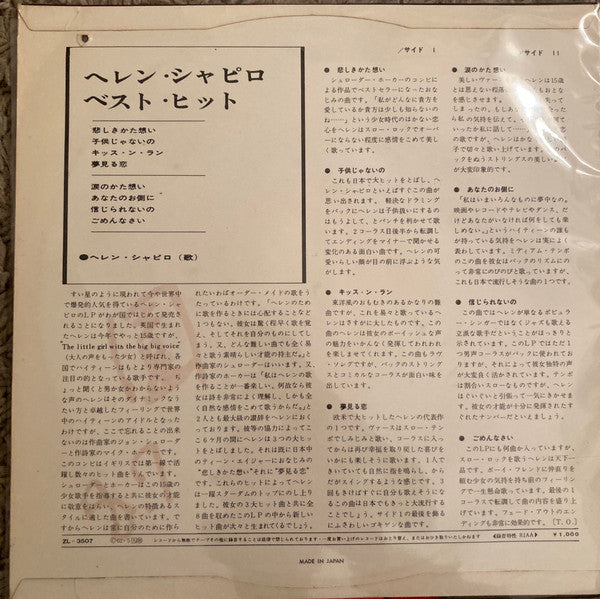 ヘレン・シャピロ
ベスト・ヒット
悲しきかた想い
子供じゃないの
キッス・ン・ラン
夢見る恋
涙のかた想い
あなたのお側に
信じられないの
ごめんなさい
●ヘレン・シャピロ (歌)
すい星のように現われて今や世界中
で爆発的人気を得ているヘレン・シャピ
ロのLPがわが国ではじめて発売さ
れることになりました。英国で生まれ
たヘレンは今年でやっと15歳ですが、
"The little girl with the big big voice"
(大人の声をもった少女) と呼ばれ、各
国でハイティーンはもとより専門家の
注目の的となっている歌手です。ち
ょっと聞くと男か女かわからないよう
な声のヘレンはそのダイナミックなう
たい方と卓越したフィーリングで世界
中のハイティーンのアイドルとなった
わけですが、ここで忘れることの出来
ないのは作曲家のジョン・シュローダ
ーと作詩家のマイク・ホーカーです。
このコンビはイギリスでは第一線で活
躍し数々のヒット曲をうんでいます。
シュローダーとホーカーはこの15歳の
少女歌手を指導すると共に彼女の才能
に敬意をはらい、ヘレンの特徴あるス
タイルに適した曲を書いています。で
すからヘレンは常に自分のために作ら
れたいわばオーダー・メイドの歌をう
たっているわけです。「ヘレンのため
に歌を作るときには心配することなど
1つもない。彼女は驚く程早く歌を覚
え、そしてそれを自分のものにしてし
まう。又、どんな難しい曲でも全く易
々と歌う素晴らしい才能の持主だ。」と
作曲家のシュローダーはいいます。又、
作詩家のホーカーは「私はヘレンの歌
を作ることが一番楽しい。何故なら彼
女は詩を非常によく理解し、しかも全
く自然な感情をこめて歌うからだ。」と
2人とも最大級の讃辞をヘレンにおく
っております。彼等の協力によってこ
こ6ケ月の間にヘレンは3つの大ヒッ
トをとばしました。それは既に日本中
のティーン・エイジャーにおなじみの
"悲しきかた想い"それに"夢見る恋"
です。これらのヒットによってヘレン
は一躍スターダムのトップにのし上り
ました。彼女の3大ヒット曲と共に全
8曲を収めたこのLPの中から新しい
ヒット曲が次々と生まれてくるでしょう。
/サイド I
● 悲しきかた想い
シュローダー・ホーカーのコンビに
よる作品でベストセラーになったおな
じみの曲です。「私がどんなに貴方を
愛しているか貴方は少しも知らないの
ね……」という少女時代のはかない恋
心をヘレンはスロー・ロックでオーバ
ーにならない程度に感情をこめて美し
く歌っています。
● 子供じゃないの
これも日本で大ヒットをとばし、ヘ
レン・シャピロといえばすぐこの曲が
思い出されます。軽決なドラミング
をバックにヘレンは子供扱いにするの
はもうよして、とパンチを利かせて歌
います。2コーラス目後半から転調し
てエンディングをマイナーで聞かせる
変化のある面白い曲です。ヘレンの可
愛いらしい顔が目の前に浮ぶような気
がします。
● キッス・ン・ラン
東洋風のおもむきのあるかなりの難
曲ですが、これを易々と歌っているヘ
レンはさすがに大したものです。この
曲のヘレンは彼女のボーイッシュな声
の魅力をいかんなく発揮してわれわれ
を楽しませてくれます。この曲もラヴ
・ソングですが、バックのストリング
スとコミカルなコーラスが面白い味を
出しています。
● 夢見る恋
欧米で大ヒットしたヘレンの代表作
の1つです。ヴァースはスロー・テン
ポでしみじみと歌い、コーラスに入って
からは再び幸福を取り戻した喜びをい
かにも楽しそうに歌います。1人でき
いていても自然に指を鳴らし、からだ
がスイングするような感じです。3
回もきけばすぐに自分も歌えそうにな
るこの曲は日本でもきっと大流行する
ことでしょう。サイド1の最後を飾る
にふさわしいゴキゲンな曲です。
/サイド II
● 涙のかた想い
● あなたのお側に
「私はいまいろんなものに夢中なの。
映画やレコードやテレビやダンス、だ
けどあなたがいなければ何をしても楽
しめない。」というハイティーンの誰も
が持っている気持をヘレンは実によく
表わしています。ミディアム・テンポ
のこの曲を彼女はバックのリズムにの
って非常にのびのびと歌っていますが、
これも日本で流行しそうな曲の1つです。
● 信じられないの
この曲でヘレンが単なるポピュラ
ー・シンガーではなくジャズも歌える
立派な歌手だということがはっきりと
示されています。このLPではただ1
つ男声コーラスがバックに使われてお
りますが、それによって彼女独特の声
が大変良く活かされています。テンポ
は割合いスローなものですが、ヘレン
はぐいぐいと引張って一気にきかせま
す。彼女の才能が十分に発揮されたす
ぐれたナンバーだといえましょう。
● ごめんなさい
このLPにも何曲か入っていますが、
スロー・ロックを歌うヘレンは天下一
品です。ボーイ・フレンドに仲直りを
頼む少女の気持を持ち前のフィーリン
グで一生懸命歌っています。最後のコ
ーラスで転調して曲の内容を盛り上げ
ています。フェード・アウトのエン
ディングも非常に効果的です。[T.O.]
ZL-3507
レコードから無断でテープその他に録音することは法律で禁じられております
《録音特性 RIAA》
¥1,000
MADE IN JAPAN